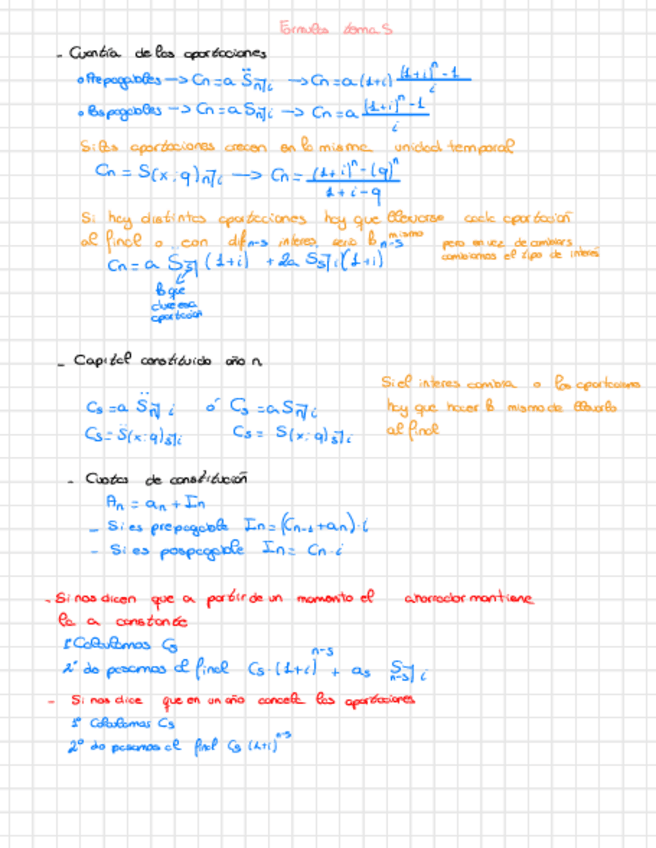 Formulas tema 5
- Cuantía de las aportaciones
• Prepagables —> Cn = a S̈n⌉i —> Cn = a (1+i) ((1+i)^n - 1)/i
• Pospagables —> Cn = a Sn⌉i —> Cn = a ((1+i)^n - 1)/i
Si las aportaciones crecen en la misma unidad temporal
Cn = S(x;q)n⌉i —> Cn = ((1+i)^n - (q)^n)/(1+i-q)
Si hay distintas aportaciones hay que llevarse cada aportación
al final o con difn-s interes sera lo mismo
pero en vez de cambiar s
cambiamos el tipo de interés
Cn = a S̈5⌉ (1+i)^n-s + 2a S5⌉i (1+i)^n-s
lo que
dure esa
aportación
- Capital constituido año n
Cs = a S̈n⌉i ó Cs = a Sn⌉i
Cs = S̈(x;q)s⌉i Cs = S(x;q)s⌉i
Si el interes cambia o las aportaciones
hay que hacer lo mismo de llevarlo
al final
- Cuotas de constitución
An = an + In
- Si es prepagable In = (Cn-1 + an)·i
- Si es pospagable In = Cn·i
- Si nos dicen que a partir de un momento el ahorrador mantiene
la a constante
1º Calculamos Cs
2º lo pasamos al final Cs·(1+i)^n-s + as S̈n-s⌉i
- Si nos dice que en un año cancela las aportaciones
1º Calculamos Cs
2º lo pasamos al final Cs (1+i)^n-s